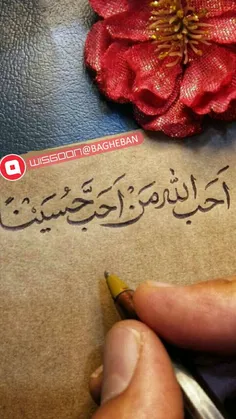 WISGOON@BAGHEBAN
اَحَبَّ اللهُ مَنْ اَحَبَّ حُسَیْناً